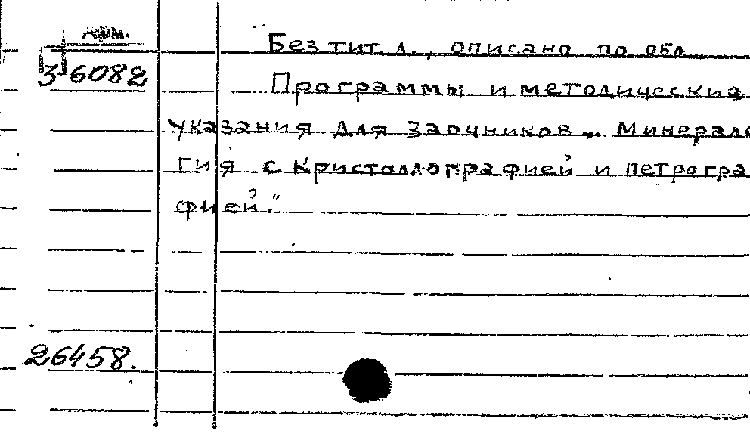 Арм.
Без тит. л., описано по обл.
36082
Программы и методические
указания для заочников „Минерало
гия с кристаллографией и петрогра
фией."
26458.